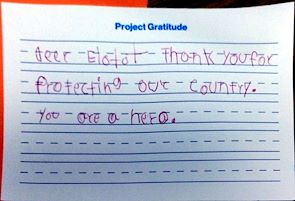 Project Gratitude
deer Elotot Thank you for
Protecting our Country.
You are a hero.